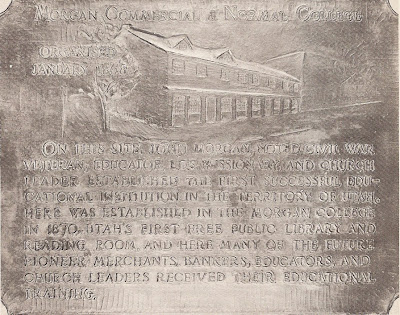 MORGAN COMMERCIAL & NORMAL COLLEGE
ORGANIZED
JANUARY
ON THIS SITE JOHN MORGAN, NOTED CIVIL WAR
VETERAN, EDUCATOR, L.D.S. MISSIONARY, AND CHURCH
LEADER ESTABLISHED THE FIRST SUCCESSFUL EDU-
CATIONAL INSTITUTION IN THE TERRITORY OF UTAH.
HERE WAS ESTABLISHED IN THE MORGAN COLLEGE
IN 1870, UTAH'S FIRST FREE PUBLIC LIBRARY AND
READING ROOM, AND HERE MANY OF THE FUTURE
PIONEER MERCHANTS, BANKERS, EDUCATORS, AND
CHURCH LEADERS RECEIVED THEIR EDUCATIONAL
TRAINING.